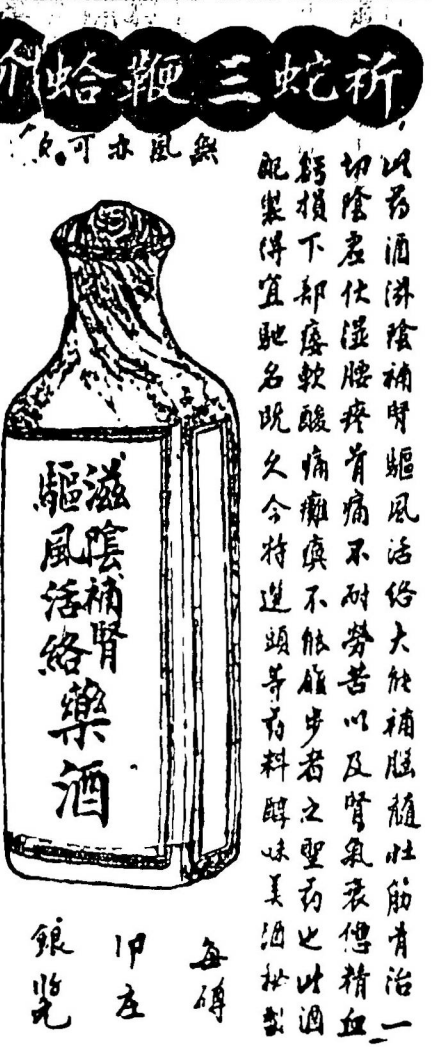 祈蛇三鞭蛤
無風亦可
此药酒滋陰補腎驅風活絡大能補腦髓壯筋骨治一
切陰虛伏湿腰疼骨痛不耐勞苦以及腎氣衰憊精血
虧損下部痿軟酸痛癱瘓不能履步者之聖药也此酒
配製得宜馳名既久今特選頭等药料醇味美酒秘製
滋陰補腎
驅風活絡
藥酒
每
庄
銀